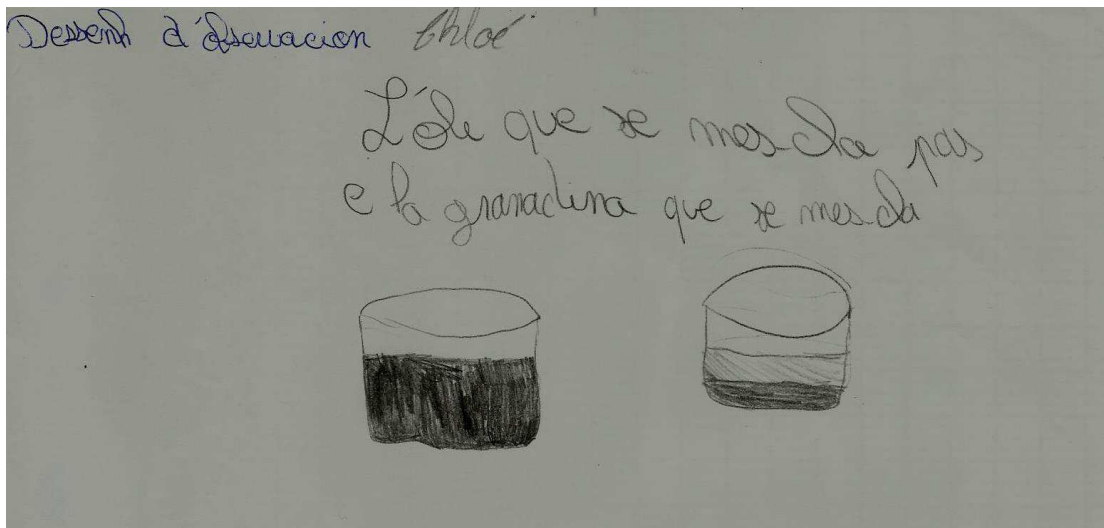 Dessenh d'observacion Chloé
L'òli que se mescla pas
e la granadina que se mescla